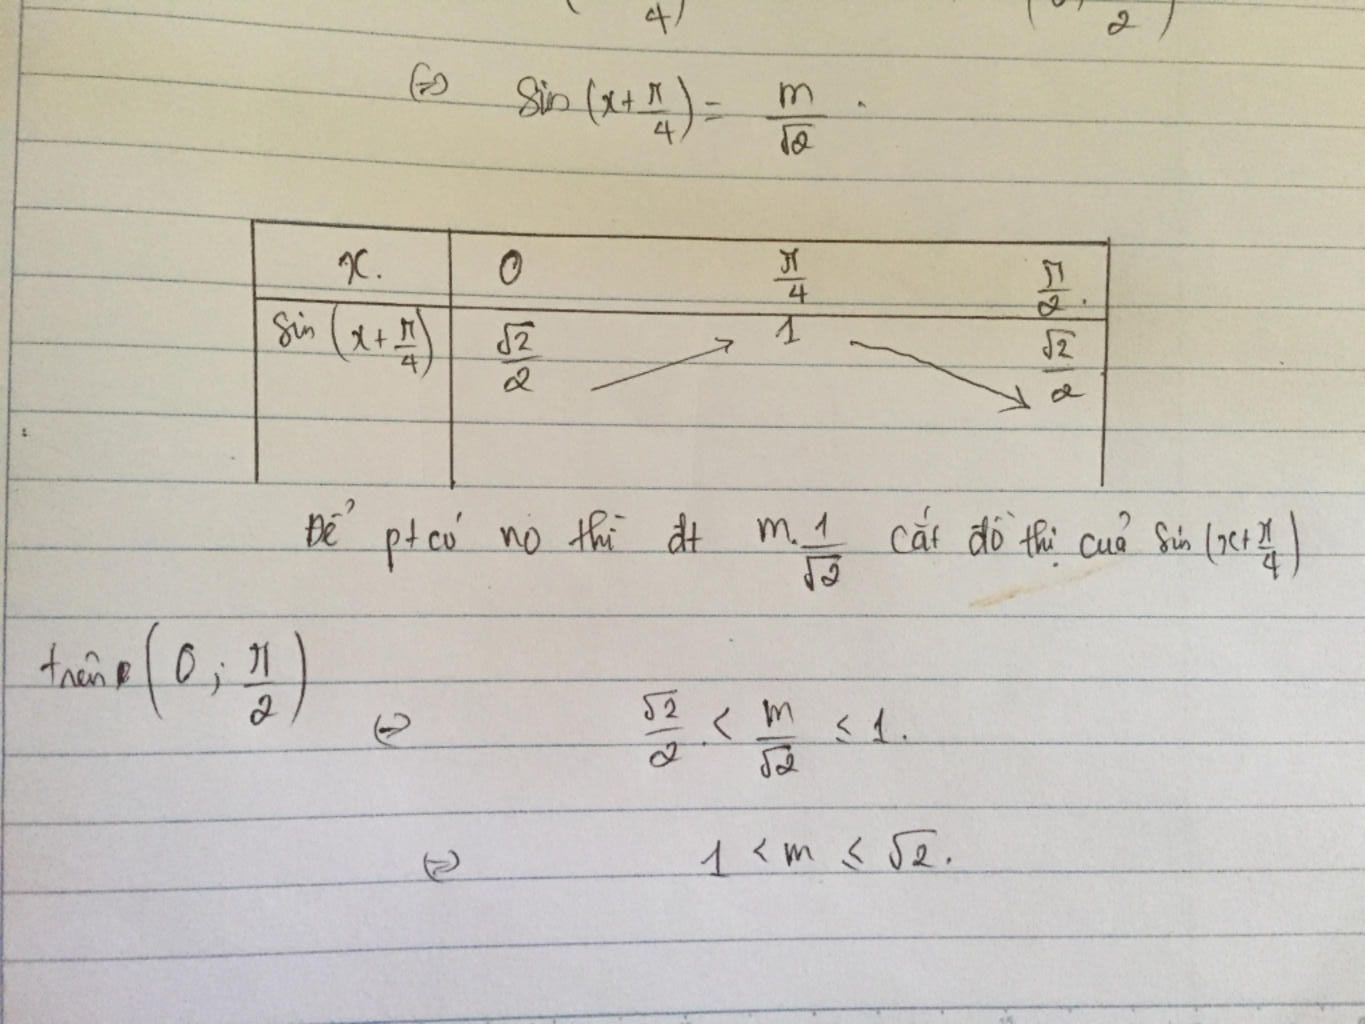 (⇔) Sin (x+π/4) = m/√2 .
x. 0 π/4 π/2.
Sin (x+π/4) √2/2 1 √2/2
Để pt có no thì đt m.1/√2 cắt đồ thị của Sin (x+π/4)
trên (0; π/2)
(⇔) √2/2 < m/√2 ≤ 1.
(⇔) 1 < m ≤ √2.